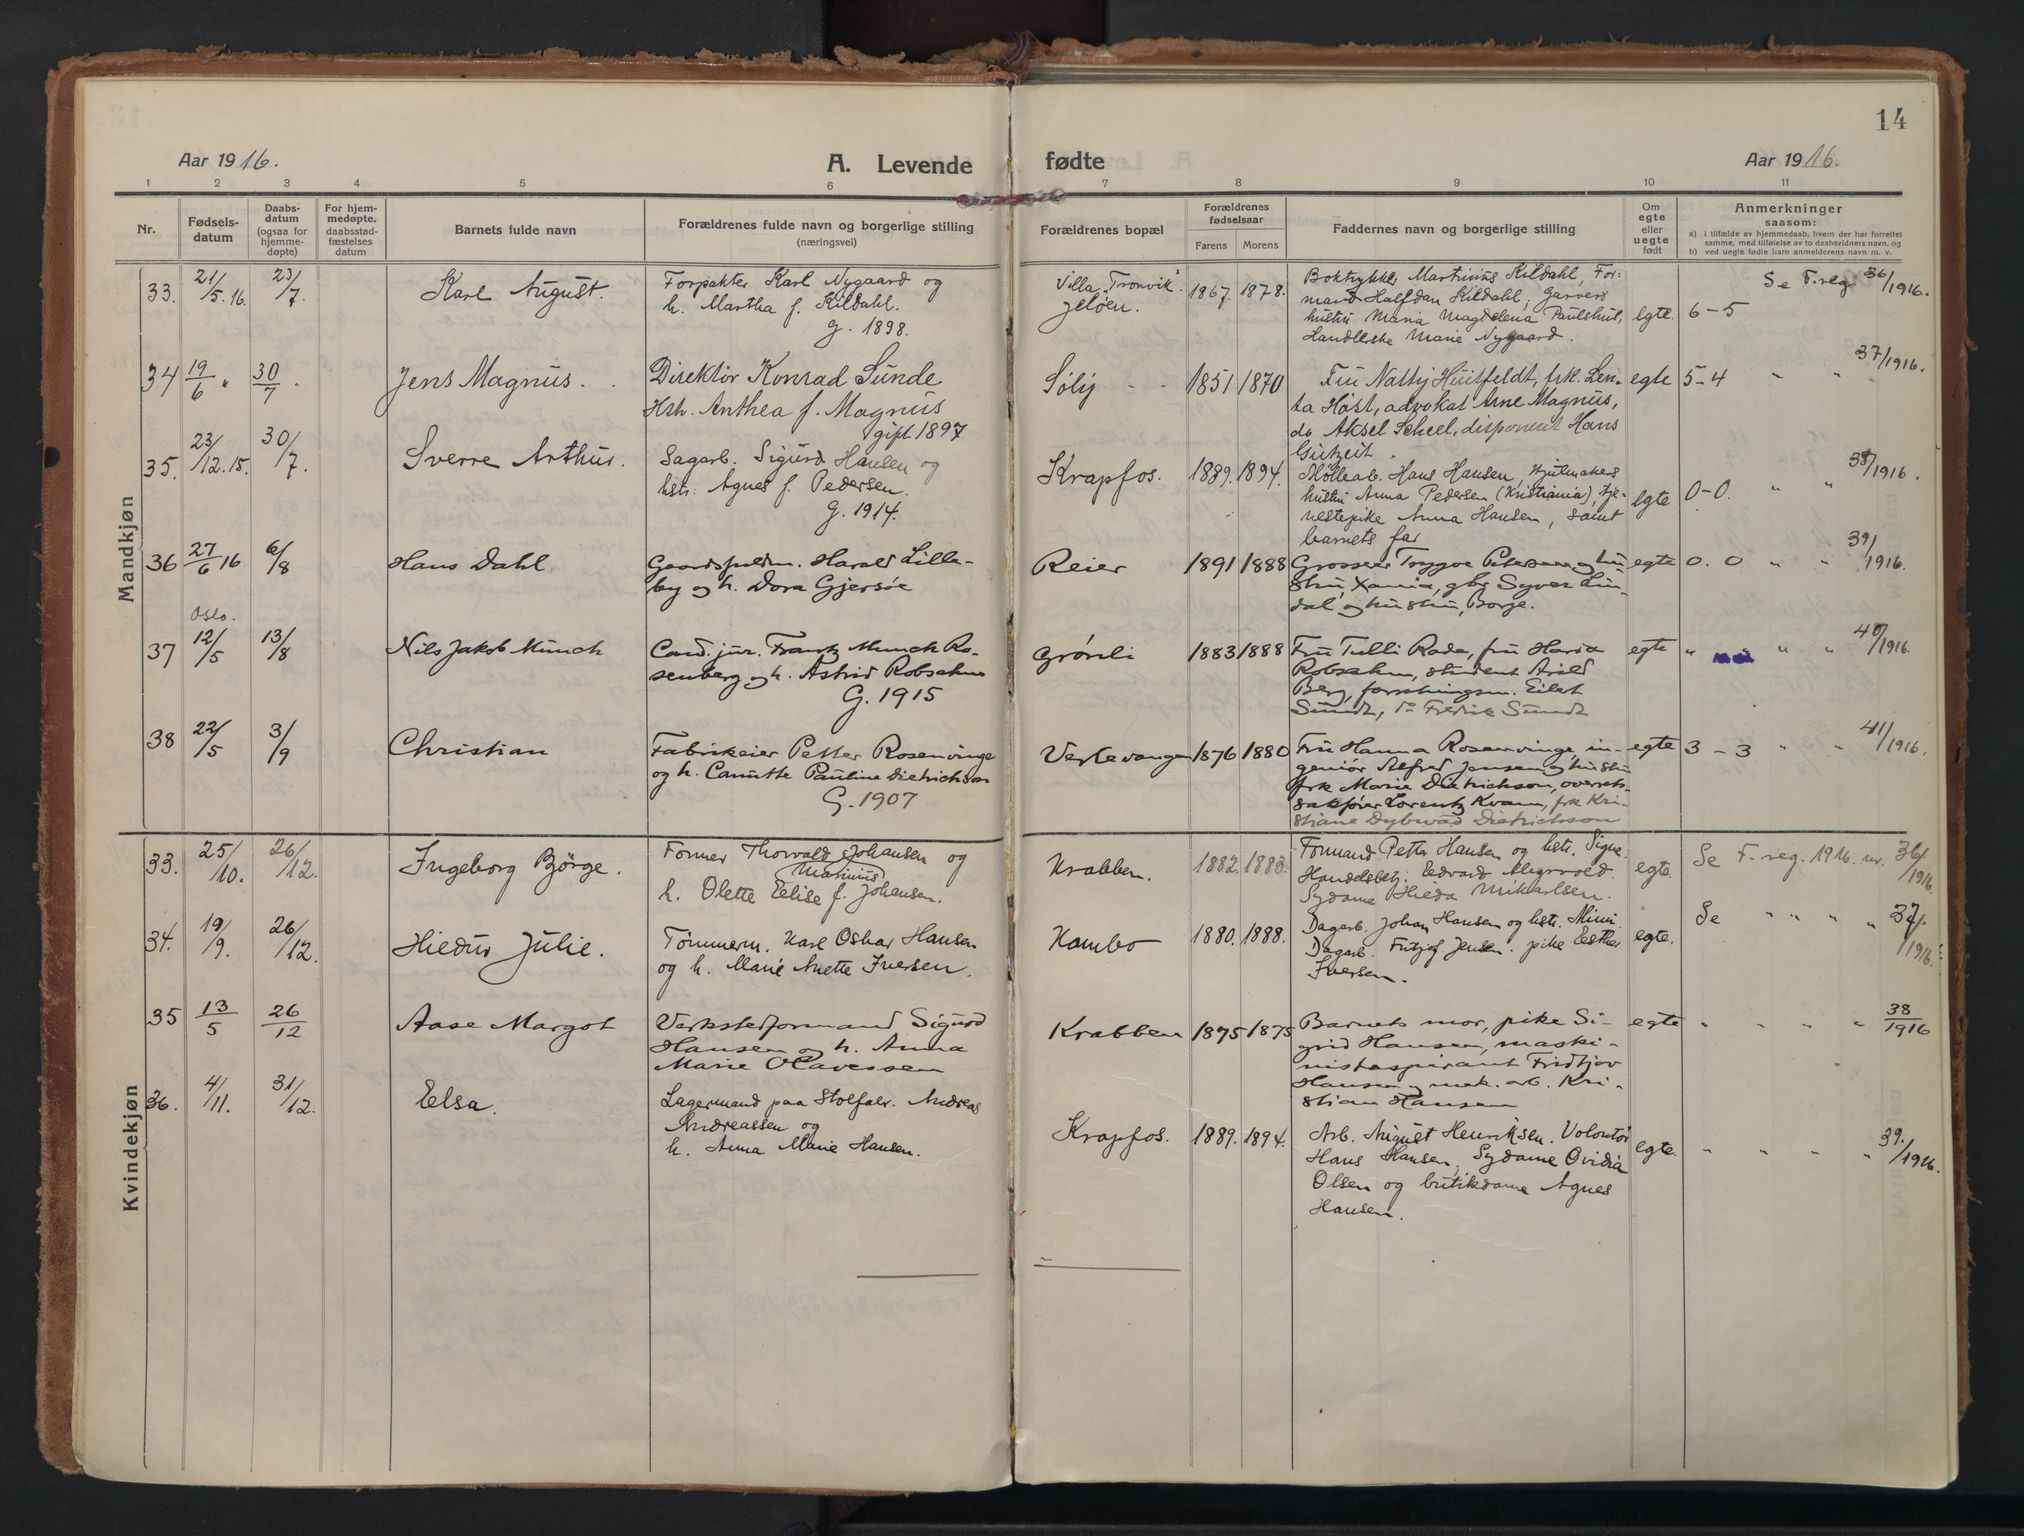 14
Aar 1916.
A. Levende
fødte
Aar 1916.
1 2 3 4 5 6 7 8 9 10 11
Nr.
Fødsels-
datum
Daabs-
datum
(ogsaa for
hjemme-
døpte)
For hjem-
medøpte,
daabsstad-
fæstelses
datum
Barnets fulde navn
Forældrenes fulde navn og borgerlige stilling
(næringsvei)
Forældrenes bopæl
Forældrenes
fødselsaar
Farens Morens
Faddernes navn og borgerlige stilling
Om
egte
eller
uegte
født
Anmerkninger
saasom:
a) i tilfælde av hjemmedaab, hvem der har forrettet
samme, med tilføielse av to daabsvidners navn, og
b) ved uegte fødte barn anmelderens navn m. v.
Mandkjøn
33. 21/5. 16. 23/7. Karl August.
Forpakter Karl Nygaard og
h. Martha f. Kildahl.
G. 1898.
Villa "Tronvik"
Jeløen.
1867. 1878.
Boktrykker Martinius Kildahl, For-
mand Halfdan Kildahl, Garvers
hustru Maria Magdelena Paulshus,
Marie Nygaard.
egte.
6-5
Se F. reg. 36/1916.
34 19/6 " 30/7. Jens Magnus.
Direktør Konrad Sunde
Hsh. Anthea f. Magnus
gift 1897
Solij
1851 1870
Fru Natty Huitfeldt, frk. Len-
ta Høst, advokat Arne Magnus,
do Aksel Scheel, disponent Hans
Gutzeit.
egte
5-4 " " 37/1916.
35. 23/12. 15. 30/7. Sverre Arthur.
Sagarb. Sigurd Hansen og
hstr. Agnes f. Pedersen.
G. 1914.
Krapfos.
1889. 1894.
Møllearb. Hans Hansen, Hjulmakers
hustru Anna Pedersen (Kristiania), tje-
nestepike Anna Hansen, samt
barnets far
egte
0-0. " " 38/1916.
36 27/6 16 6/8 Hans Dahl
Gaardsfuldm. Harald Lille-
by og h. Dora Gjersøe
Reier
1891 1888
Grosserer Trygve Petersen og hu-
stru, Xania, gbr Syver Lin-
dal og hustru, Borge.
egte
0. 0 " " 39/1916.
Oslo.
37 12/5 13/8 Nils Jakob Munch
Cand. jur. Frantz Munch Ro-
senberg og h. Astrid Robsahm
G. 1915
Grønli
1883 1888
Fru Tulli Rode, fru Maria
Robsahm, student Arild
Berg, forretningsm. Eilert
Sundt, do Fredrik Sundt
egte
" " " 40/1916.
38 22/5 3/9 Christian
Fabrikeier Petter Rosenvinge
og h. Canutte Pauline Dietrichson
G. 1907
Verlevangen
1876 1880
Fru Hanna Rosenvinge in-
geniør Alfred Jensen og hustru
frk Marie Dietrichson, overrets-
sakfører Lorentz Kvam, frk Kri-
stiane Dybwad Dietrichson
egte
3-3 " " 41/1916.
Kvindekjøn
33. 25/10. 26/12. Ingeborg Børge.
Former Thorvald Johansen og
Marinius
h. Olette Elise f. Johansen.
Krabben.
1882. 1883.
Formand Petter Hansen og hstr. Signe.
Handelsbetj. Edvard Myrvold.
Sydame Hilda Mikalsen.
egte.
Se F. reg. 1916 nr. 36/1916
34. 19/9. 26/12. Hildur Julie.
Tømmerm. Karl Oskar Hansen
og h. Marie Anette Iversen.
Kambo
1880. 1888.
Dagarb. Johan Hansen og hstr. Mimi
Dagarb. Fritjof Jensen. pike Esther
Iversen.
egte.
Se " " " " 37/1916.
35 13/5 26/12 Aase Margot
Verkstedformand Sigurd
Hansen og h. Anna
Marie Olavessen
Krabben
1875 1875
Barnets mor, pike Si-
grid Hansen, maski-
nistaspirant Fridtjov
Hansen og mek. arb. Kri-
stian Hansen
egte
" " " " 38/1916
36. 4/11. 31/12. Elsa.
Lagermand paa Stolfabr. Andreas
Andreassen og
h. Anna Marie Hansen.
Krapfos.
1889. 1894.
Arb. August Henriksen. Volontør
Hans Hansen, Sydame Ovidia
Olsen og butikdame Agnes
Hansen.
egte.
" " " " 39./1916.